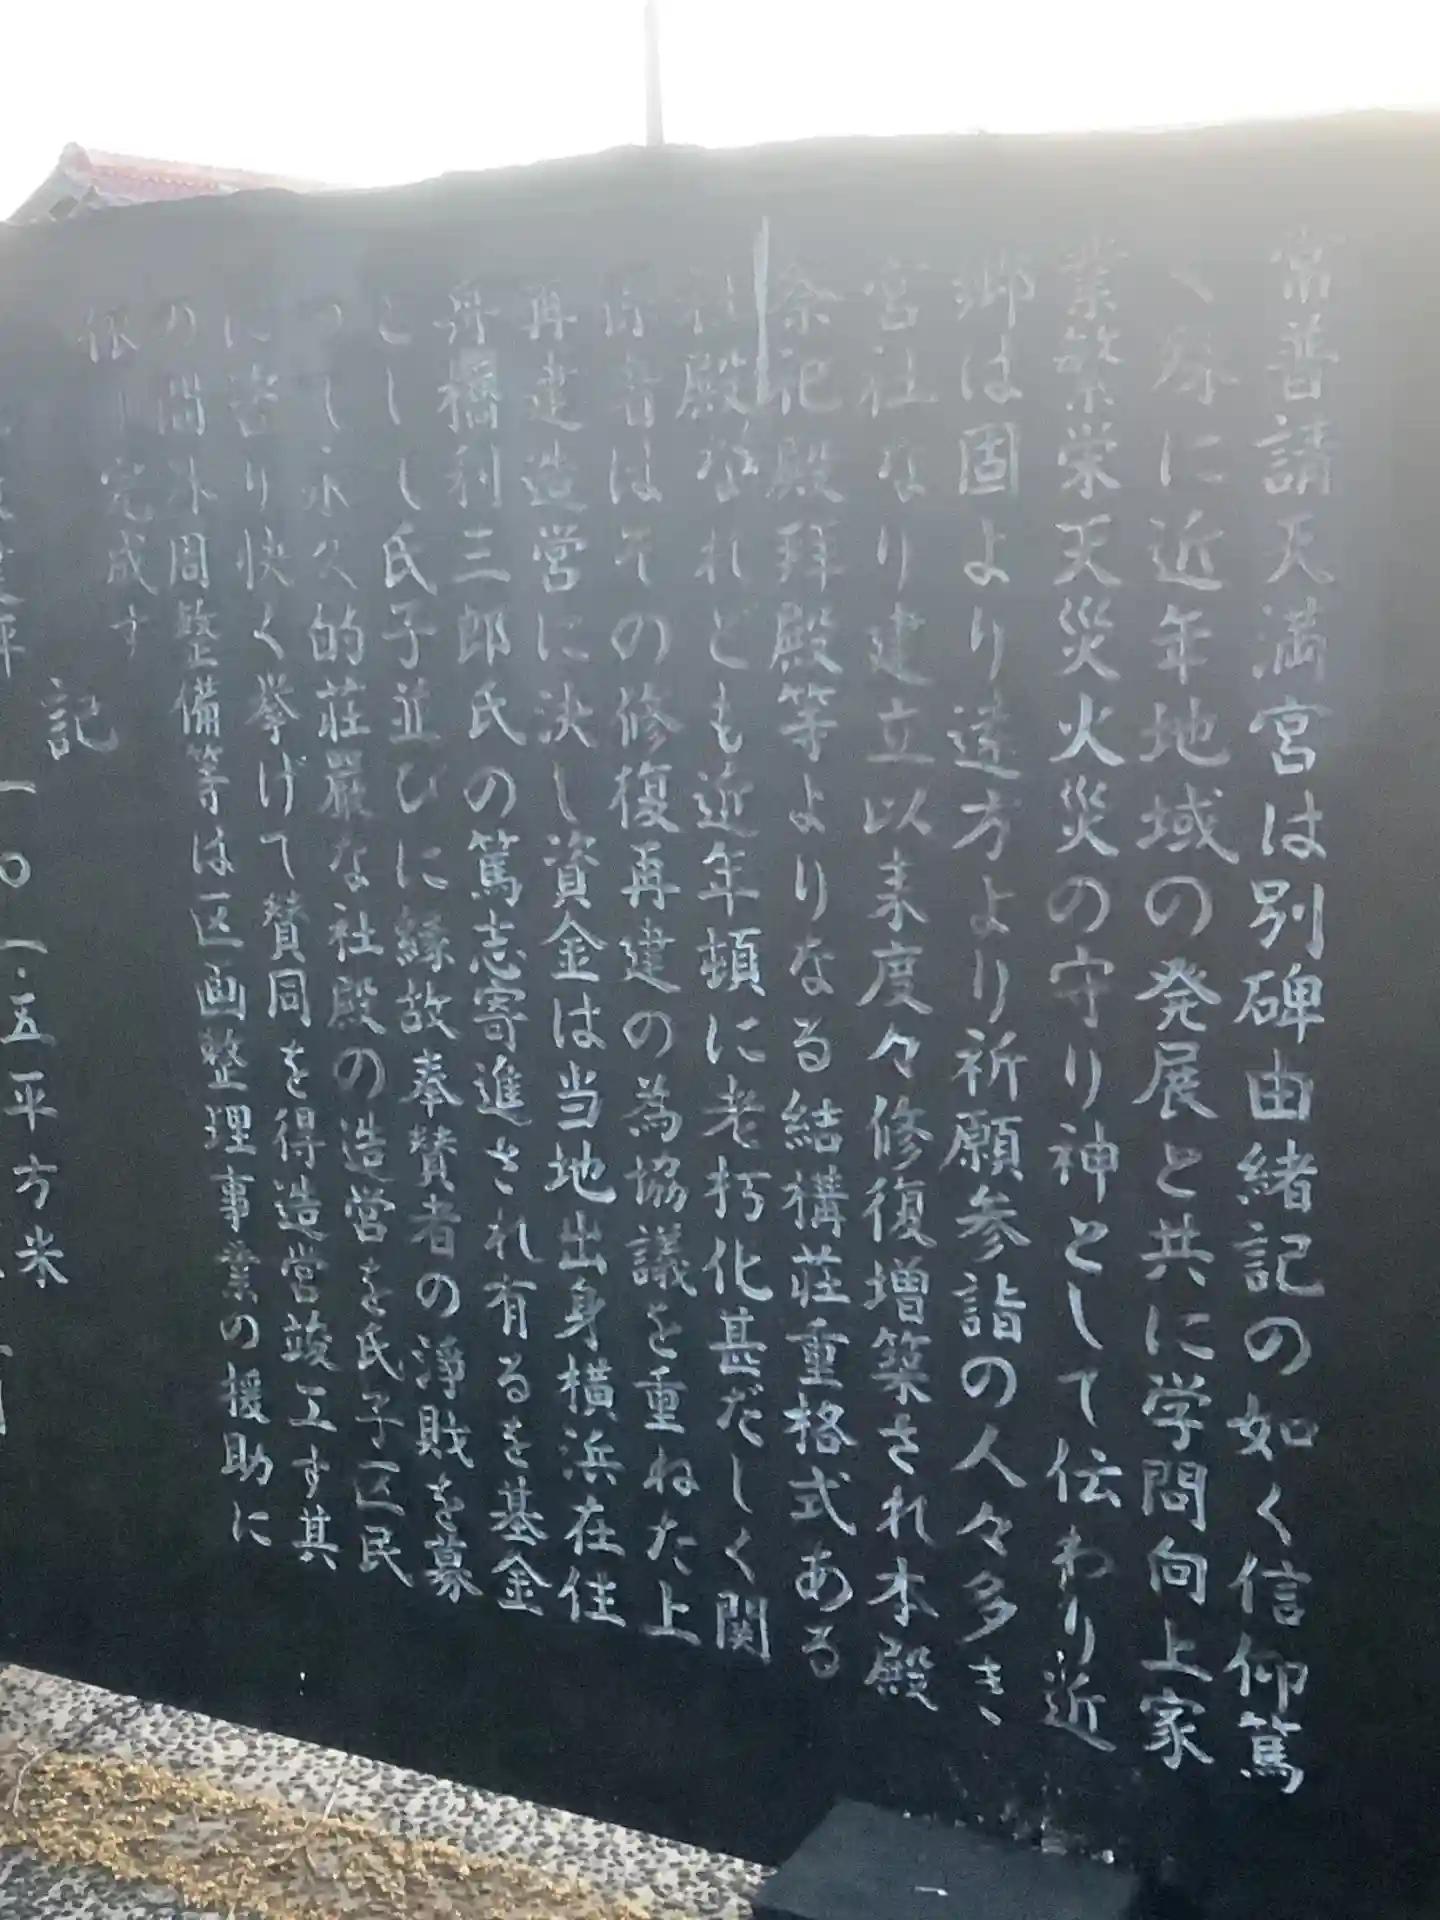 常普請天満宮は別碑由緒記の如く信仰篤
く殊に近年地域の発展と共に学問向上家
業繁栄天災火災の守り神として伝わり近
郷は固より遠方より祈願参詣の人々多き
宮社なり建立以来度々修復増築され本殿
祭祀殿拝殿等よりなる結構荘重格式ある
社殿なれども近年頓に老朽化甚だしく関
係者はその修復再建の為協議を重ねた上
再建造営に決し資金は当地出身横浜在住
舟橋利三郎氏の篤志寄進され有るを基金
とし氏子並びに縁故奉賛者の浄財を募
つし永久的荘厳な社殿の造営を氏子区民
に諮り快く挙げて賛同を得造営竣工す其
の間外周整備等は区画整理事業の援助に
依り完成す
記
一〇一・五平方米